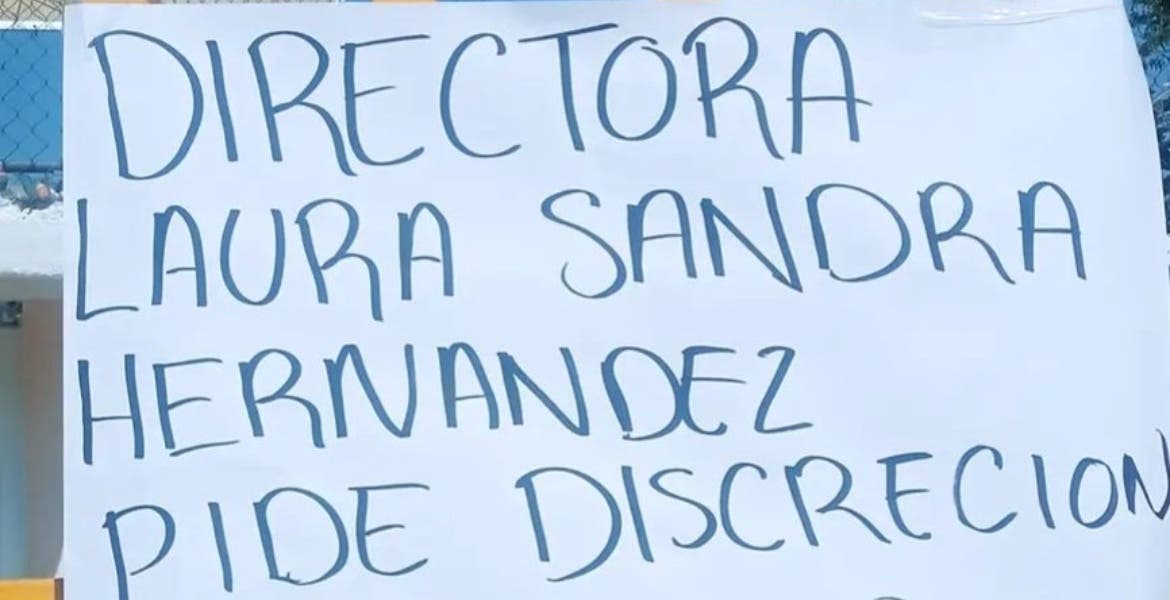 DIRECTORA
LAURA SANDRA
HERNANDEZ
PIDE DISCRECION